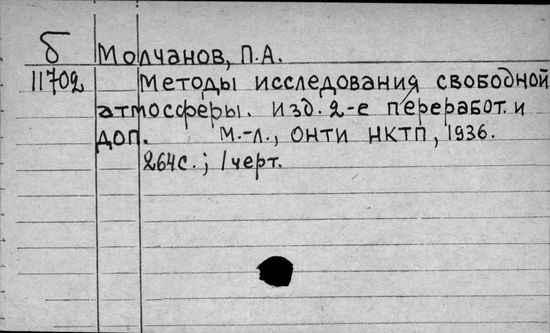 б Молчанов, П.А.
11702 Методы исследования свободной
атмосферы. изд. 2-е переработ. и
доп. М.-Л., ОНТИ НКТП, 1936.
264с.; 1 черт.